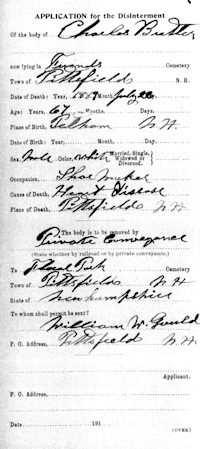 APPLICATION for the Disinterment
Of the body of Charles Butler
now lying in Friends Cemetery
Town of Pittsfield N. H.
Date of Death: Year, 18 Month, July
Age: Years, 67 Months, Days.
Place of Birth, Pelham N H
Sex, Male Color, White Married, Single, Widowed or Divorced.
Occupation, Shoe Maker
Cause of Death, Heart Disease
Place of Death, Pittsfield N H
The body is to be removed by
Private Conveyance
(State whether by railroad or by private conveyance.)
To Floral Park Cemetery
Town of Pittsfield N H
State of New hampshire
To whom shall permit be sent?
William W. Gould
P. O. Address, Pittsfield N H
Applicant.
P. O. Address,
Date 191
(OVER)